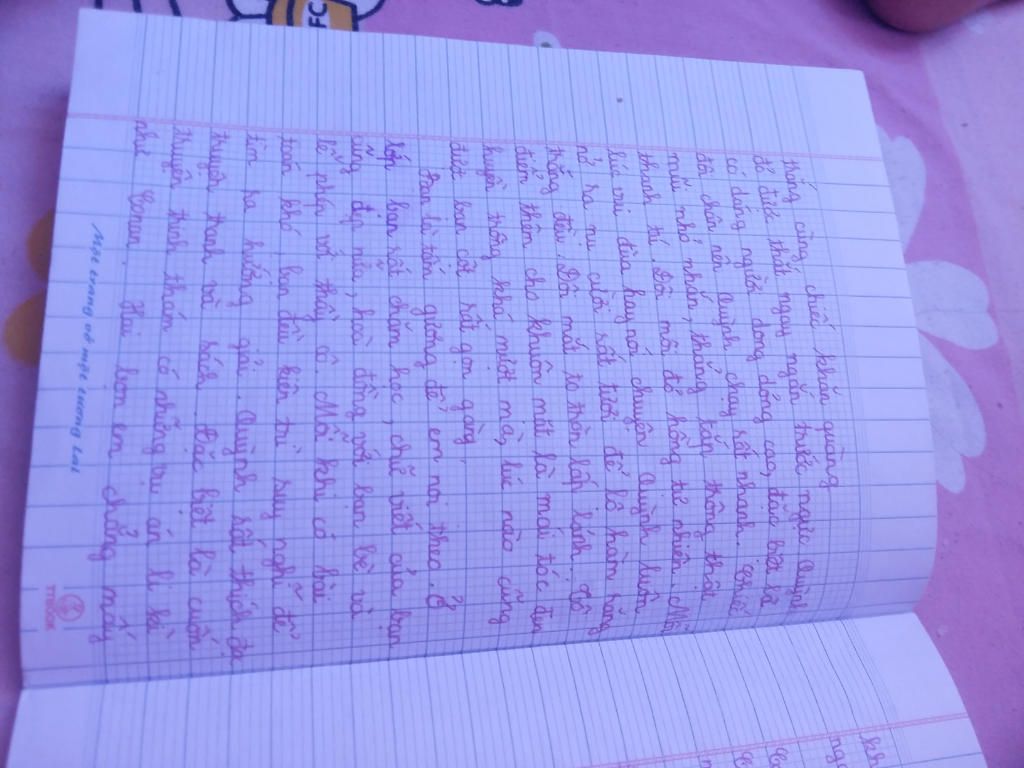 trắng cùng chiếc khăn quàng
đỏ được thắt ngay ngắn trước ngực. Quỳnh
có dáng người dong dỏng cao, đặc biệt là
đôi chân nên Quỳnh chạy rất nhanh.
mũi nhỏ nhắn, thẳng tắp trông thật
thanh tú. Đôi môi đỏ hồng tự nhiên. Mỗi
lúc vui đùa hay nói chuyện Quỳnh luôn
nở ra nụ cười rất tươi để lộ hàm răng
trắng đều. Đôi mắt to tròn lấp lánh. Tô
điểm thêm cho khuôn mặt là mái tóc đen
huyền trông khá mượt mà, lúc nào cũng
được bạn cột rất gọn gàng.
Bạn là tấm gương để em noi theo. Ở
lớp bạn rất chăm học, chữ viết của bạn
cũng đẹp nữa, hoà đồng với bạn bè và
lễ phép với thầy cô. Mỗi khi có bài
toán khó, bạn đều kiên trì suy nghĩ để
tìm ra hướng giải. Quỳnh rất thích đọc
truyện tranh và sách. Đặc biệt là cuốn
truyện trinh thám có những vụ án li kì
như Conan. Hai bọn em chẳng mấy
Mặc trang vở mộc tương lai
TTBOOK
FC
kh
ngo